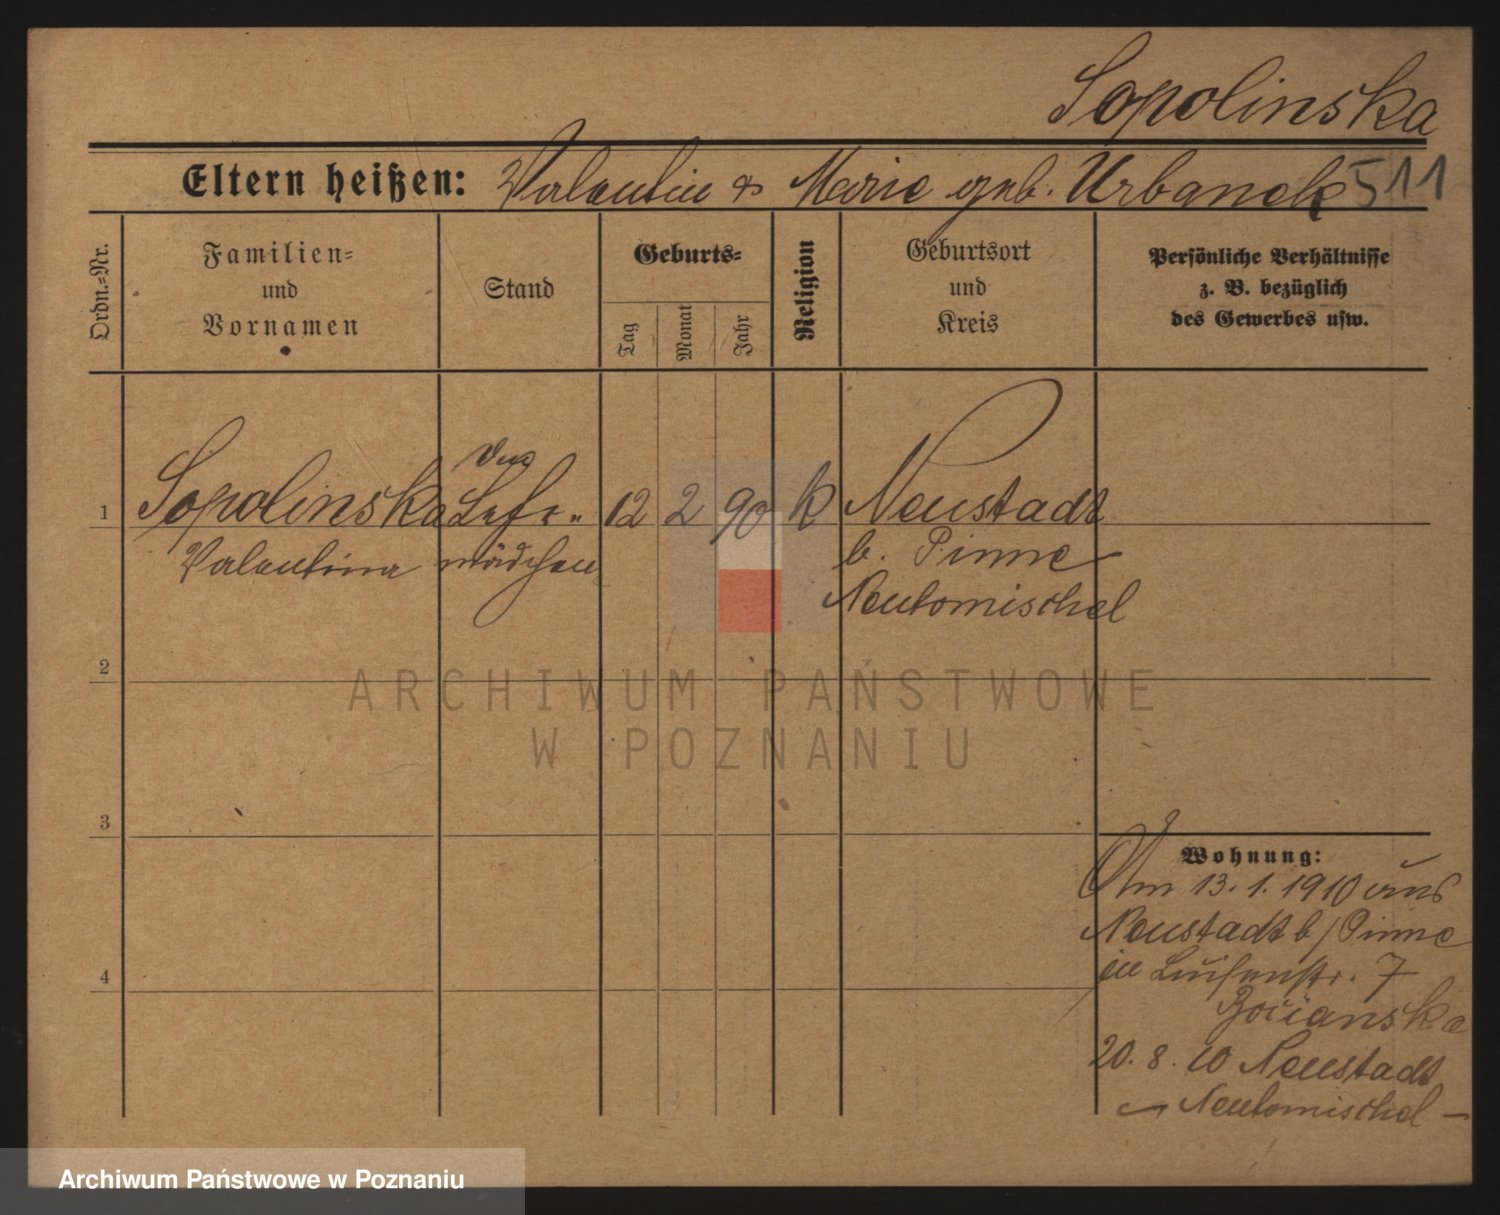 Sopolinska
Eltern heißen: Valentin & Marie geb. Urbanek 511
Ordn.-Nr.
Familien-
und
Vornamen
Stand
Geburts-
Tag
Monat
Jahr
Religion
Geburtsort
und
Kreis
Persönliche Verhältnisse
z. B. bezüglich
des Gewerbes usw.
1 Sopolinska Lehr- 12 2 90 k Neustadt
Valentina mädchen b. Pinne
Neutomischel
2
ARCHIWUM PAŃSTWOWE
W POZNANIU
3
Wohnung:
Am 13.1.1910 aus
Neustadt b/Pinne
in Luisenstr. 7
20.8.10 Neustadt
Neutomischel
4
Archiwum Państwowe w Poznaniu